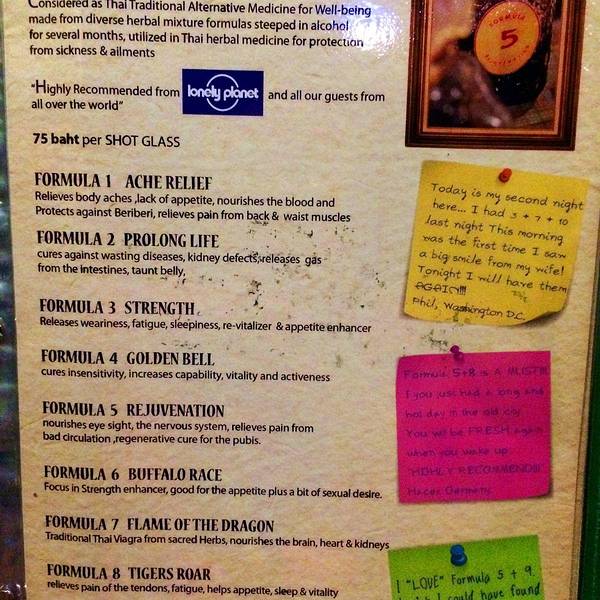 Considered as Thai Traditional Alternative Medicine for Well-being
made from diverse herbal mixture formulas steeped in alcohol
for several months, utilized in Thai herbal medicine for protection
from sickness & ailments
"Highly Recommended from lonely planet and all our guests from
all over the world"
75 baht per SHOT GLASS
FORMULA 1 ACHE RELIEF
Relieves body aches ,lack of appetite, nourishes the blood and
Protects against Beriberi, relieves pain from back & waist muscles
FORMULA 2 PROLONG LIFE
cures against wasting diseases, kidney defects,releases gas
from the intestines, taunt belly,
FORMULA 3 STRENGTH
Releases weariness, fatigue, sleepiness, re-vitalizer & appetite enhancer
FORMULA 4 GOLDEN BELL
cures insensitivity, increases capability, vitality and activeness
FORMULA 5 REJUVENATION
nourishes eye sight, the nervous system, relieves pain from
bad circulation ,regenerative cure for the pubis.
FORMULA 6 BUFFALO RACE
Focus in Strength enhancer, good for the appetite plus a bit of sexual desire.
FORMULA 7 FLAME OF THE DRAGON
Traditional Thai Viagra from sacred Herbs, nourishes the brain, heart & kidneys
FORMULA 8 TIGERS ROAR
relieves pain of the tendons, fatigue, helps appetite, sleep & vitality
FORMULA
5
Today is my second night
here... I had 3 + 7 + 10
last night This morning
was the first time I saw
a big smile from my wife!
Tonight I will have them
AGAIN!!!
Phil, Washington D.C.
Formula 5+8 is A MUST!!!
If you just had a long and
hot day in the old city
You will be FRESH again
when you wake up
"HIGHLY RECOMMEND!!!
Germany
I "LOVE" Formula 5 + 9.
I could have found